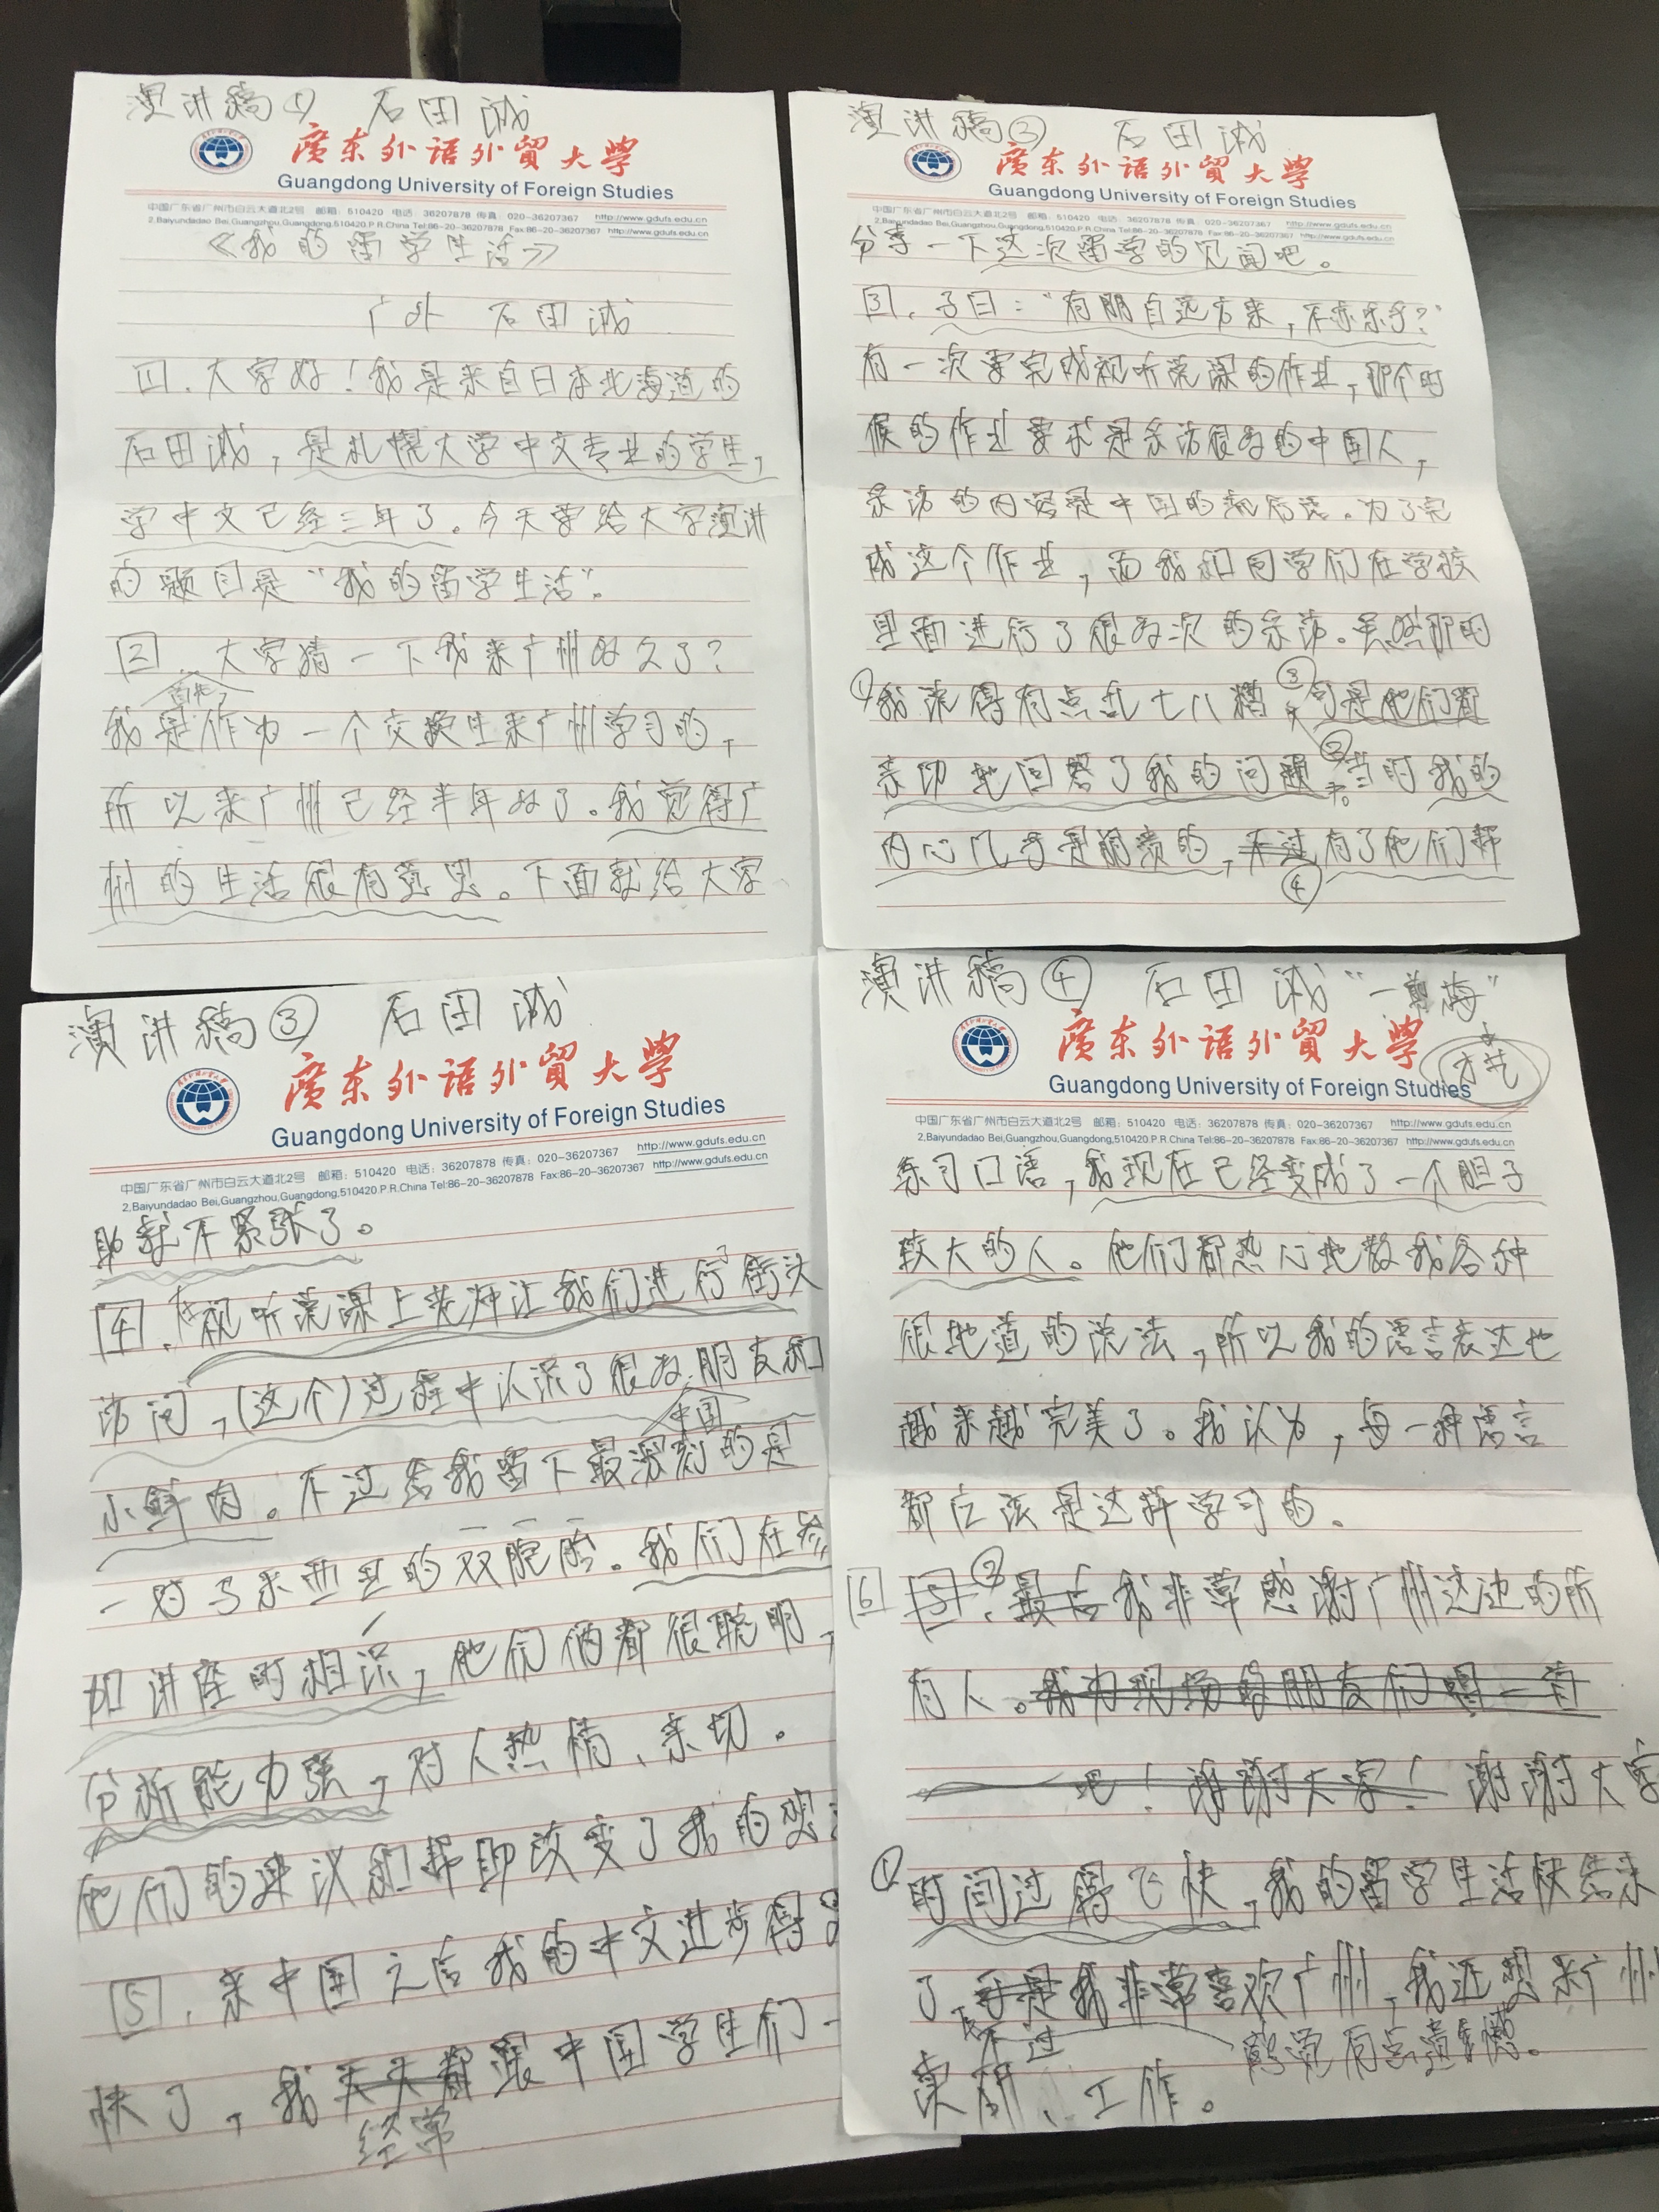 演讲稿① 石田诚
廣东外语外貿大學
Guangdong University of Foreign Studies
中国广东省广州市白云大道北2号 邮箱：510420 电话：36207878 传真：020-36207367 http://www.gdufs.edu.cn
2,Baiyundadao Bei,Guangzhou,Guangdong,510420.P.R.China Tel:86-20-36207878 Fax:86-20-36207367 http://www.gdufs.edu.cn
《我的留学生活》
广外 石田诚
大家好！我是来自日本北海道的
石田诚，是札幌大学中文专业的学生，
学中文已经三年了。今天要给大家演讲
的题目是“我的留学生活”。
2. 大家猜一下我来广州好久了？
我是作为一个交换生来广州学习的，
所以来广州已经半年好了。我觉得广
州的生活很有意思。下面就给大家
演讲稿② 石田诚
廣东外语外貿大學
Guangdong University of Foreign Studies
中国广东省广州市白云大道北2号 邮箱：510420 电话：36207878 传真：020-36207367 http://www.gdufs.edu.cn
2,Baiyundadao Bei,Guangzhou,Guangdong,510420.P.R.China Tel:86-20-36207878 Fax:86-20-36207367 http://www.gdufs.edu.cn
分享一下这次留学的见闻吧。
3. 子曰：“有朋自远方来，不亦乐乎？”
有一次要完成视听说课的作业，那个时
候的作业要求是采访很多的中国人，
采访的内容是中国的流行语。为了完
成这个作业，而我和同学们在学校
里面进行了很多次的采访。虽然那时
①我说得有点乱七八糟 ③可是他们都
亲切地回答了我的问题 ②当时我的
内心几乎是崩溃的，不过有了他们帮
④
演讲稿③ 石田诚
廣东外语外貿大學
Guangdong University of Foreign Studies
中国广东省广州市白云大道北2号 邮箱：510420 电话：36207878 传真：020-36207367 http://www.gdufs.edu.cn
2,Baiyundadao Bei,Guangzhou,Guangdong,510420.P.R.China Tel:86-20-36207878 Fax:86-20-36207367 http://www.gdufs.edu.cn
助就不紧张了。
4. 在视听说课上老师让我们进行了街头
访问，（这个）过程中认识了很多朋友和
中国
小鲜肉。不过给我留下最深刻的是
一对马来西亚的双胞胎。我们在参
加讲座时相识，他们俩都很聪明，
分析能力强，对人热情、亲切。
他们的建议和帮助改变了我的
5. 来中国之后我的中文进步得
快了，我天天都跟中国学生们一
经常
演讲稿④ 石田诚 “一剪梅”
才艺
廣东外语外貿大學
Guangdong University of Foreign Studies
中国广东省广州市白云大道北2号 邮箱：510420 电话：36207878 传真：020-36207367 http://www.gdufs.edu.cn
2,Baiyundadao Bei,Guangzhou,Guangdong,510420.P.R.China Tel:86-20-36207878 Fax:86-20-36207367 http://www.gdufs.edu.cn
练习口语，我现在已经变成了一个胆子
较大的人。他们都热心地教我各种
很地道的说法，所以我的语言表达也
越来越完美了。我认为，每一种语言
都应该是这样学习的。
6 5. ②最后我非常感谢广州这边的所
有人。我为现场的朋友们唱一首
吧！谢谢大家！谢谢大家
①时间过得飞快，我的留学生活快结束
了，可是我非常喜欢广州，我还想来广州
不过 感觉有点遗憾。
读研、工作。